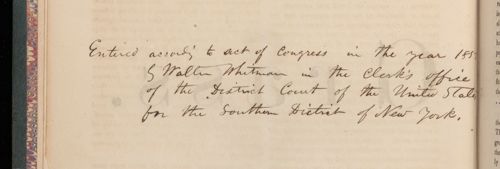 Entered according to act of Congress in the year 185
by Walter Whitman in the Clerk's office
of the District Court of the United State
for the Southern District of New York.